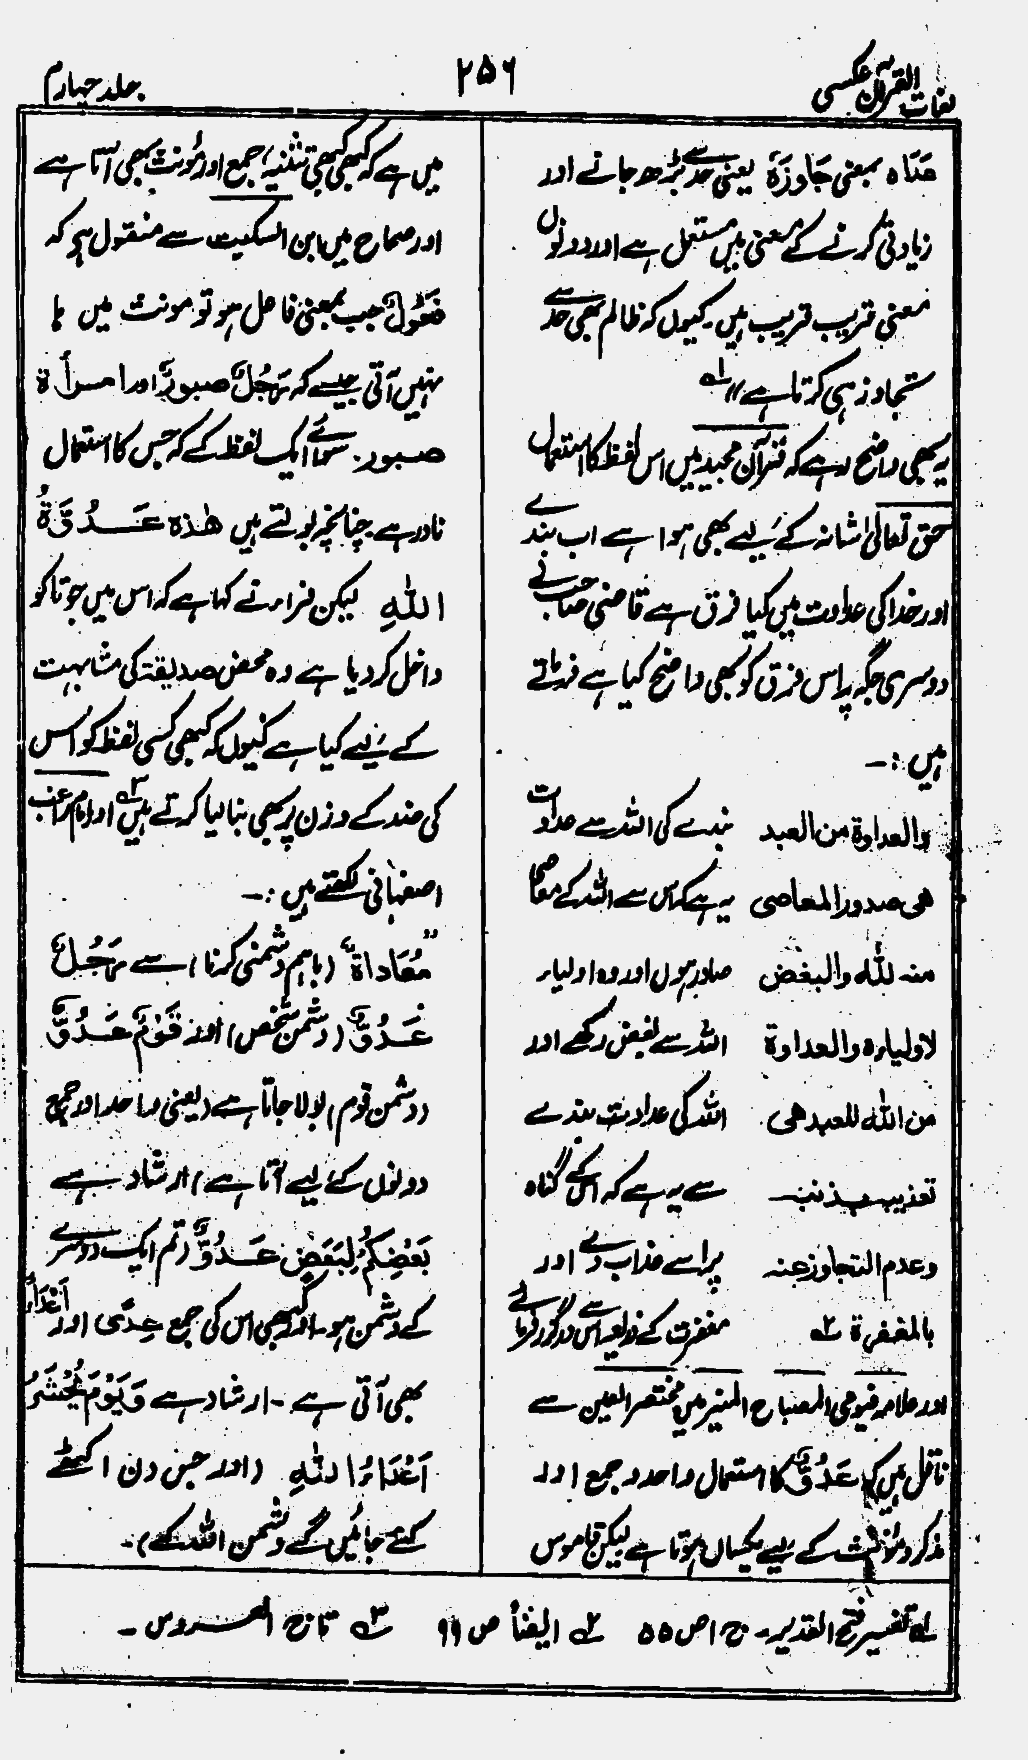 لغات القرآن عکسی
۲۵۶
جلد چہارم
عَدَاہ بمعنی جَاوَزَہٗ یعنی حد سے بڑھ جانے اور
زیادتی کرنے کے معنی میں مستعمل ہے اور دونوں
معنی قریب قریب ہیں۔ کیوں کہ ظالم بھی حد سے
تجاوز ہی کرتا ہے" لہ
یہ بھی واضح رہے کہ قرآن مجید میں اس لفظ کا استعمال
حق تعالیٰ شانہ کے لیے بھی ہوا ہے اب بندے
اور خدا کی عداوت میں کیا فرق ہے قاضی صاحب نے
دوسری جگہ پر اس فرق کو بھی واضح کیا ہے فرماتے
ہیں :۔
والعداوة من العبد بندے کی اللہ سے عداوت
ھی صدور المعاصی یہ ہے کہ اس سے اللہ کے معاصی
منہ للہ والبغض صادر ہوں اور وہ اولیاء
لاولیاءہ والعداوة اللہ سے بغض رکھے اور
من اللہ للعبد ھی اللہ کی عداوت بندے
تعذیب بذنبہ سے یہ ہے کہ اس کے گناہ
وعدم التجاوز عنہ پر اسے عذاب دے اور
بالمغفرة ۲ہ مغفرت کے ذریعہ اس سے درگزر نہ فرمائے
اور علامہ فیومی المصباح المنیر میں مختصر العین سے
ناقل ہیں کہ عَدُوٌّ کا استعمال واحد و جمع اور
مذکر و مؤنث کے لیے یکساں ہوتا ہے لیکن قاموس
میں ہے کہ کبھی کبھی تثنیہ، جمع اور مؤنث بھی آتا ہے
اور صحاح میں ابن السکیت سے منقول ہے کہ
فَعُولٌ جب بمعنی فاعل ہو تو مونث میں ہا
نہیں آتی جیسے کہ رَجُلٌ صبورٌ اور امرأة
صبور۔ سوائے ایک لفظ کے کہ جس کا استعمال
نادر ہے چنانچہ بولتے ہیں ھٰذہ عَدُوَّةُ
اللہِ لیکن فراء نے کہا ہے کہ اس میں جو تا کو
داخل کر دیا ہے وہ محض صدیقة کی مشابہت
کے لیے کیا ہے کیوں کہ کبھی کسی لفظ کو اس
کی ضد کے وزن پر بھی بنا لیا کرتے ہیں ۳ہ اور امام راغب
اصفہانی لکھتے ہیں :۔
"مُعَاداةٌ" (باہم دشمنی کرنا) سے رَجُلٌ
عَدُوٌّ (دشمن شخص) اور قَوْمٌ عَدُوٌّ
(دشمن قوم) بولا جاتا ہے (یعنی واحد اور جمع
دونوں کے لیے آتا ہے) ارشاد ہے
بَعْضُکُمْ لِبَعْضٍ عَدُوٌّ (تم ایک دوسرے
کے دشمن ہو۔ اور کبھی اس کی جمع عِدًی اور اَعْدَاءٌ
بھی آتی ہے ۔ ارشاد ہے وَیَوْمَ یُحْشَرُ
اَعْدَاءُ اللہِ (اور جس دن اکٹھے
کئے جائیں گے دشمن اللہ کے)۔
لہ تفسیر فتح القدیر۔ ج ا ص ۵۵ ۲ہ ایضاً ص ۹۹ ۳ہ تاج العروس ۔